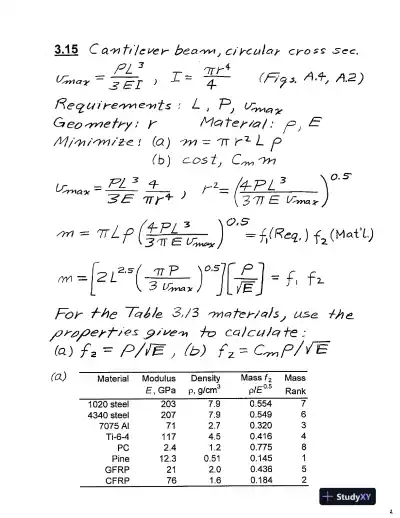 3.15 Cantilever beam, circular cross sec.
υmax = PL³/3EI , I = πr⁴/4 (Figs. A.4, A.2)
Requirements: L, P, υmax
Geometry: r Material: ρ, E
Minimize: (a) m = πr²Lρ
(b) cost, Cm m
υmax = PL³/3E 4/πr⁴ , r² = (4PL³/3πEυmax)^0.5
m = πLρ(4PL³/3πEυmax)^0.5 = f₁(Req.) f₂(Mat'l.)
m = [2L^2.5(πP/3υmax)^0.5][ρ/√E] = f₁ f₂
For the Table 3.13 materials, use the
properties given to calculate:
(a) f₂ = ρ/√E , (b) f₂ = Cmρ/√E
(a) Material Modulus Density Mass f₂ Mass
E, GPa ρ, g/cm³ ρ/E^0.5 Rank
1020 steel 203 7.9 0.554 7
4340 steel 207 7.9 0.549 6
7075 Al 71 2.7 0.320 3
Ti-6-4 117 4.5 0.416 4
PC 2.4 1.2 0.775 8
Pine 12.3 0.51 0.145 1
GFRP 21 2.0 0.436 5
CFRP 76 1.6 0.184 2
StudyXY